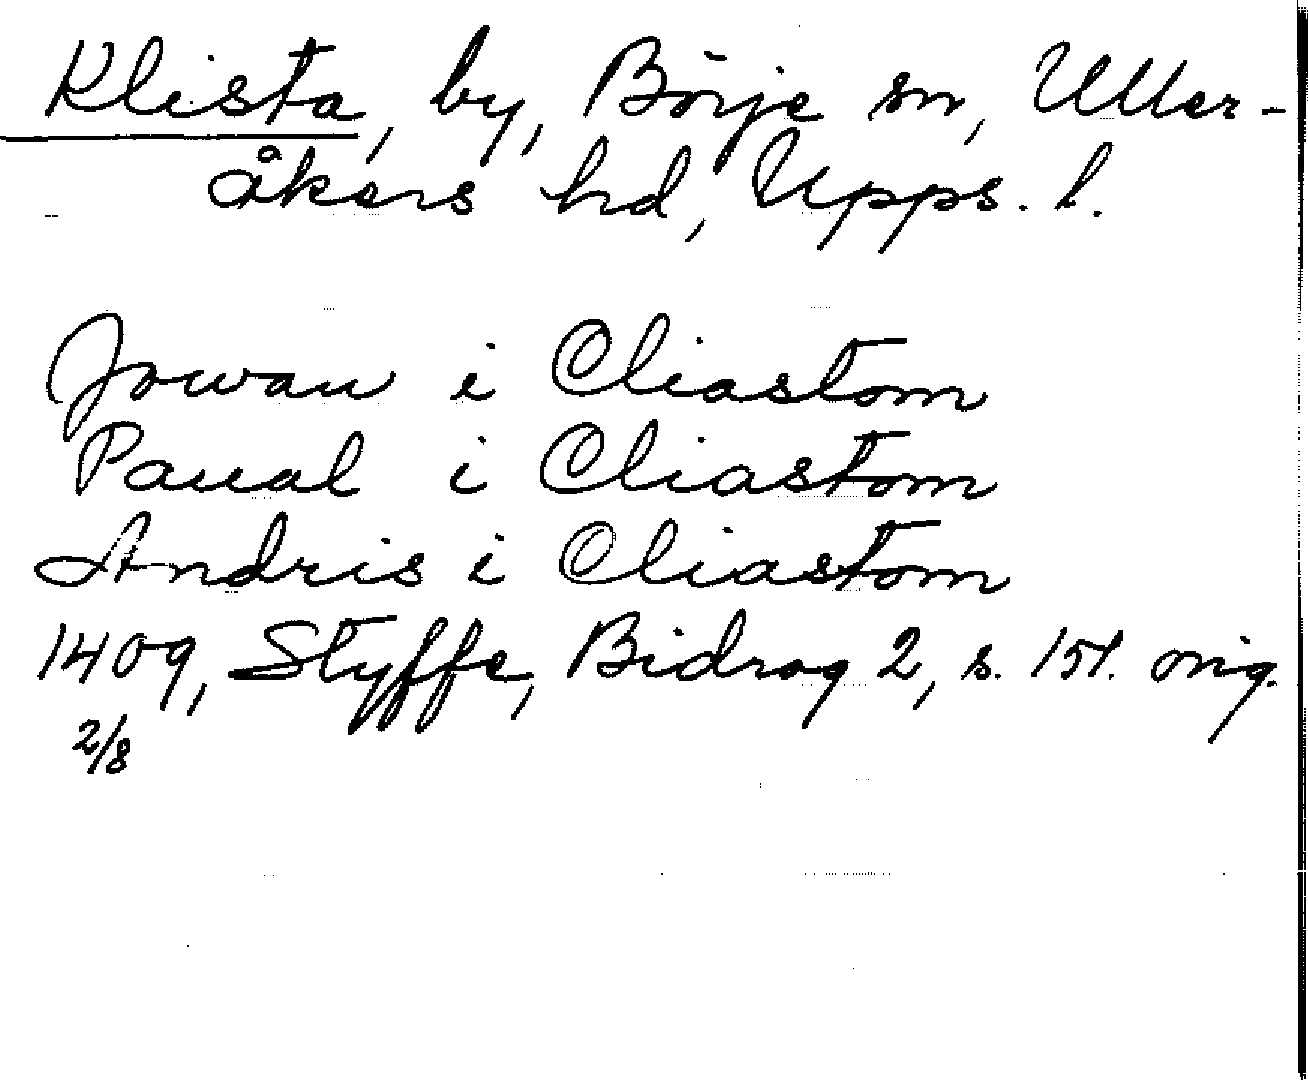 Klista, by, Börje sn, Uller-
åkers hd, Upps. l.
Jowan i Cliastom
Paual i Cliastom
Andris i Cliastom
1409, Styffe, Bidrag 2, s. 151. orig.
2/8